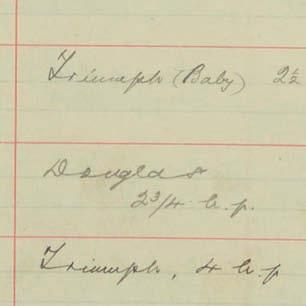 Triumph (Baby) 2½
Douglas
2¾ h.p.
Triumph, 4 h.p